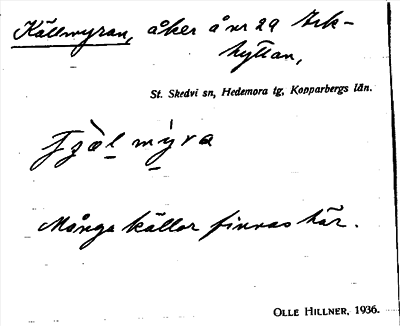 Källmyran, åker å nr 29 Ark-
hyttan,
St. Skedvi sn, Hedemora tg, Kopparbergs län.
myra
Många källor finnas här.
OLLE HILLNER, 1936.